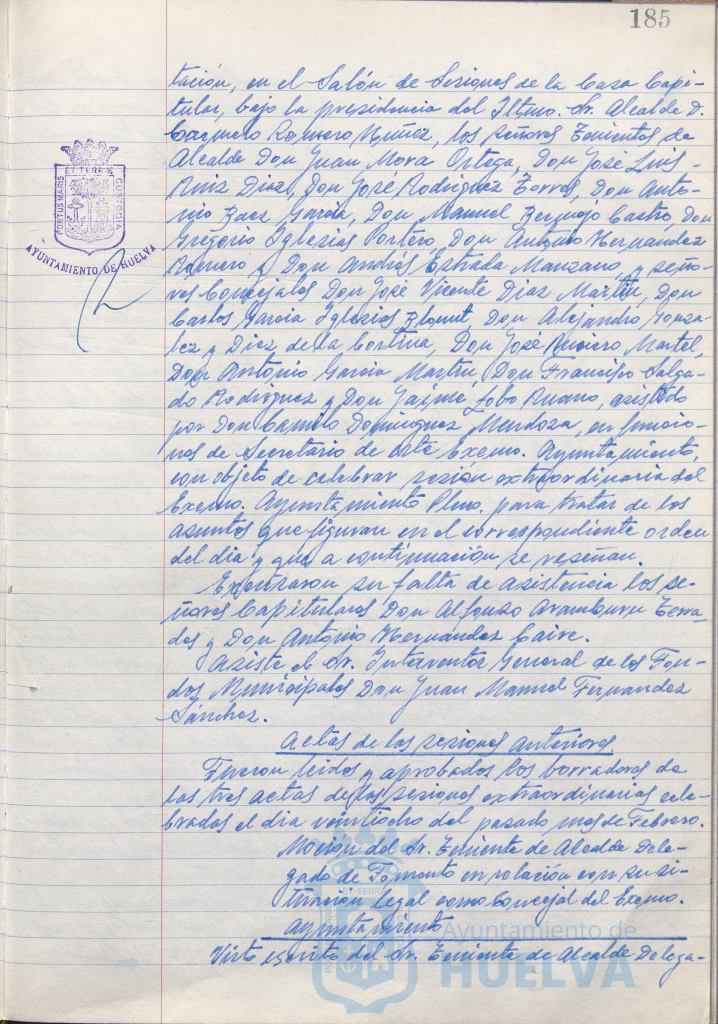 185
tación, en el Salón de Sesiones de la Casa Capi-
tular, bajo la presidencia del Iltmo. Sr. Alcalde D.
Carmelo Romero Núñez, los señores Tenientes de
Alcalde Don Juan Mora Ortega, Don José Luis-
Ruiz Diaz, Don José Rodriguez Torres, Don Anto-
nio Baez Garcia, Don Manuel Bermejo Castro, Don
Gregorio Iglesias Portero, Don Antonio Hernandez
Romero y Don Andrés Estrada Manzano, y seño-
res Concejales Don José Vicente Diaz Martin, Don
Carlos Garcia Iglesias Don Alejandro Gonza-
lez y Diez de la Cortina, Don José Martel,
Don Antonio Garcia Martin, Don Francisco Salga-
do Rodriguez y Don Jaime Lobo Ruano, asistido
por Don Camilo Dominguez Mendoza, en funcio-
nes de Secretario de este Excmo. Ayuntamiento,
con objeto de celebrar sesión extraordinaria del
Excmo. Ayuntamiento Pleno, para tratar de los
asuntos que figuran en el correspondiente orden
del dia y que a continuación se reseñan.
Excusaron su falta de asistencia los se-
ñores Capitulares Don Alfonso Aramburu Terra-
des y Don Antonio Hernandez Caire.
Asiste el Sr. Interventor General de los Fon-
dos Municipales Don Juan Manuel Fernandez
Sánchez.
Actas de las sesiones anteriores
Fueron leidos y aprobados los borradores de
las tres actas de las sesiones extraordinarias cele-
bradas el dia veintiocho del pasado mes de Febrero.
Mocion del Sr. Teniente de Alcalde Dele-
gado de Fomento en relación con su si-
tuación legal como Concejal del Excmo.
Ayuntamiento
Visto escrito del Sr. Teniente de Alcalde Delega-
PORTUS MARIS ET TERRAE CUSTODIA
AYUNTAMIENTO DE HUELVA
Ayuntamiento de
HUELVA